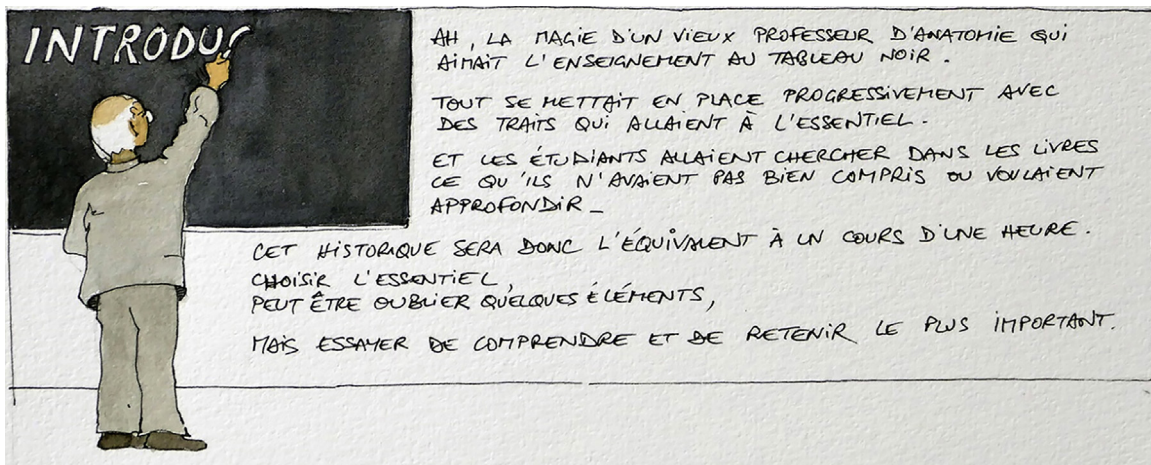 INTRODUC
AH, LA MAGIE D'UN VIEUX PROFESSEUR D'ANATOMIE QUI
AIMAIT L'ENSEIGNEMENT AU TABLEAU NOIR.
TOUT SE METTAIT EN PLACE PROGRESSIVEMENT AVEC
DES TRAITS QUI ALLAIENT À L'ESSENTIEL.
ET LES ÉTUDIANTS ALLAIENT CHERCHER DANS LES LIVRES
CE QU'ILS N'AVAIENT PAS BIEN COMPRIS OU VOULAIENT
APPROFONDIR_
CET HISTORIQUE SERA DONC L'ÉQUIVALENT À UN COURS D'UNE HEURE.
CHOISIR L'ESSENTIEL,
PEUT ÊTRE OUBLIER QUELQUES ÉLÉMENTS,
MAIS ESSAYER DE COMPRENDRE ET DE RETENIR LE PLUS IMPORTANT.